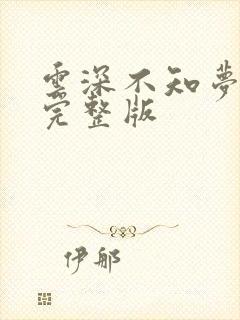 雲深不知夢
完整版
伊那